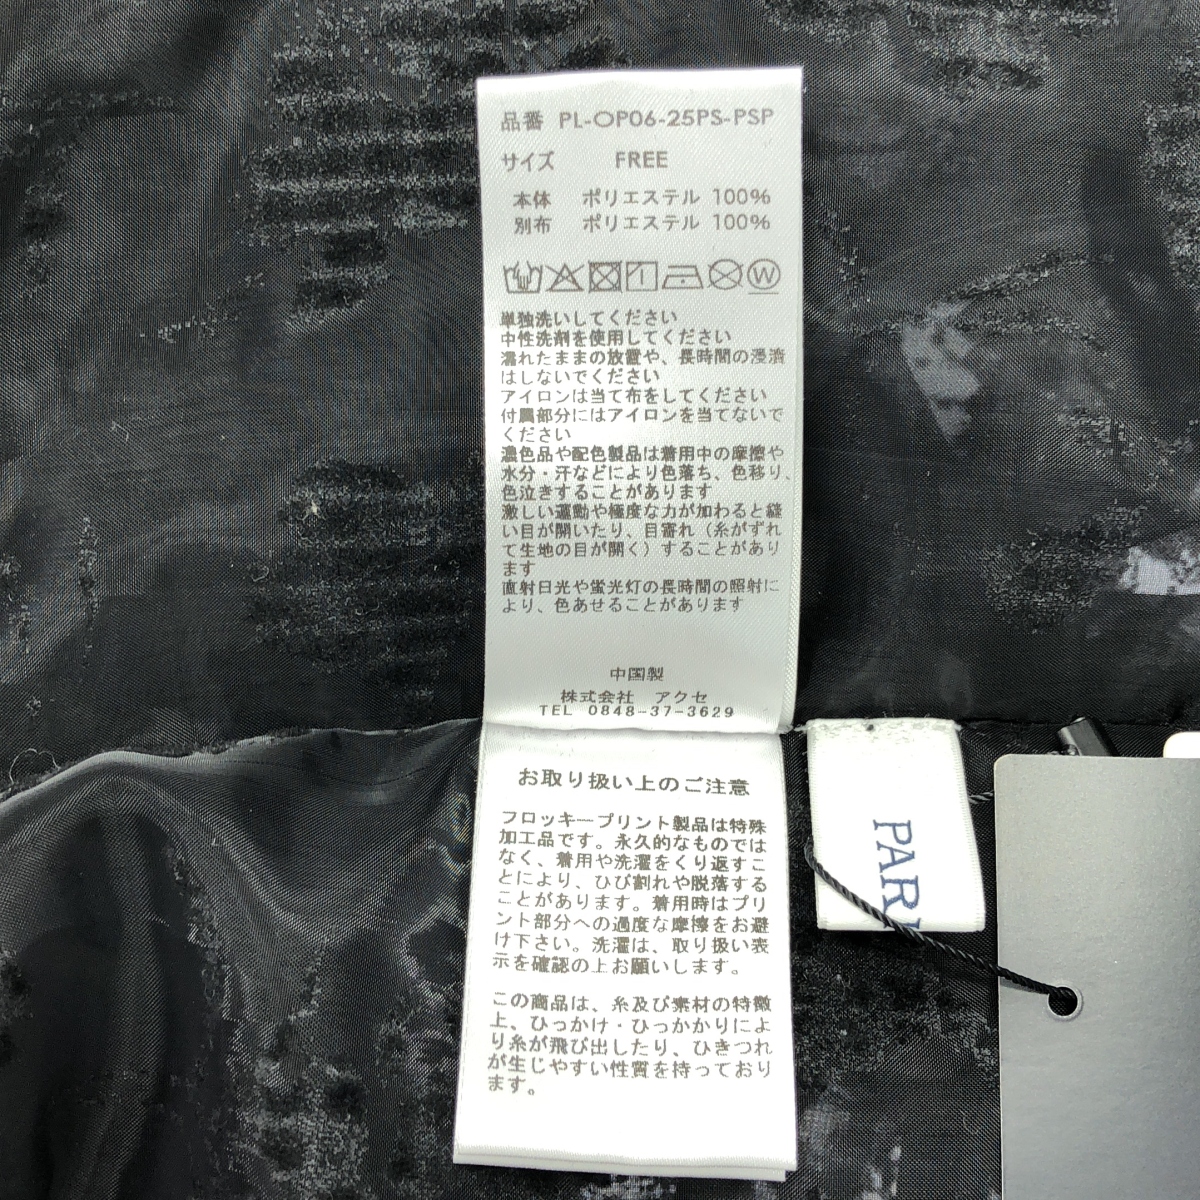 品番 PL-OP06-25PS-PSP
サイズ FREE
本体 ポリエステル 100%
別布 ポリエステル 100%
W
単独洗いしてください
中性洗剤を使用してください
濡れたままの放置や、長時間の浸漬
はしないでください
アイロンは当て布をしてください
付属部分にはアイロンを当てないで
ください
濃色品や配色製品は着用中の摩擦や
水分・汗などにより色落ち、色移り、
色泣きすることがあります
激しい運動や極度な力が加わると縫
い目が開いたり、目寄れ(糸がずれ
て生地の目が開く)することがあり
ます
直射日光や蛍光灯の長時間の照射に
より、色あせることがあります
中国製
株式会社 アクセ
TEL 0848-37-3629
お取り扱い上のご注意
フロッキープリント製品は特殊
加工品です。永久的なものでは
なく、着用や洗濯をくり返すこ
とにより、ひび割れや脱落する
ことがあります。着用時はプリ
ント部分への過度な摩擦をお避
け下さい。洗濯は、取り扱い表
示を確認の上お願いします。
この商品は、糸及び素材の特徴
上、ひっかけ・ひっかかりによ
り糸が飛び出したり、ひきつれ
が生じやすい性質を持っており
ます。
PARI